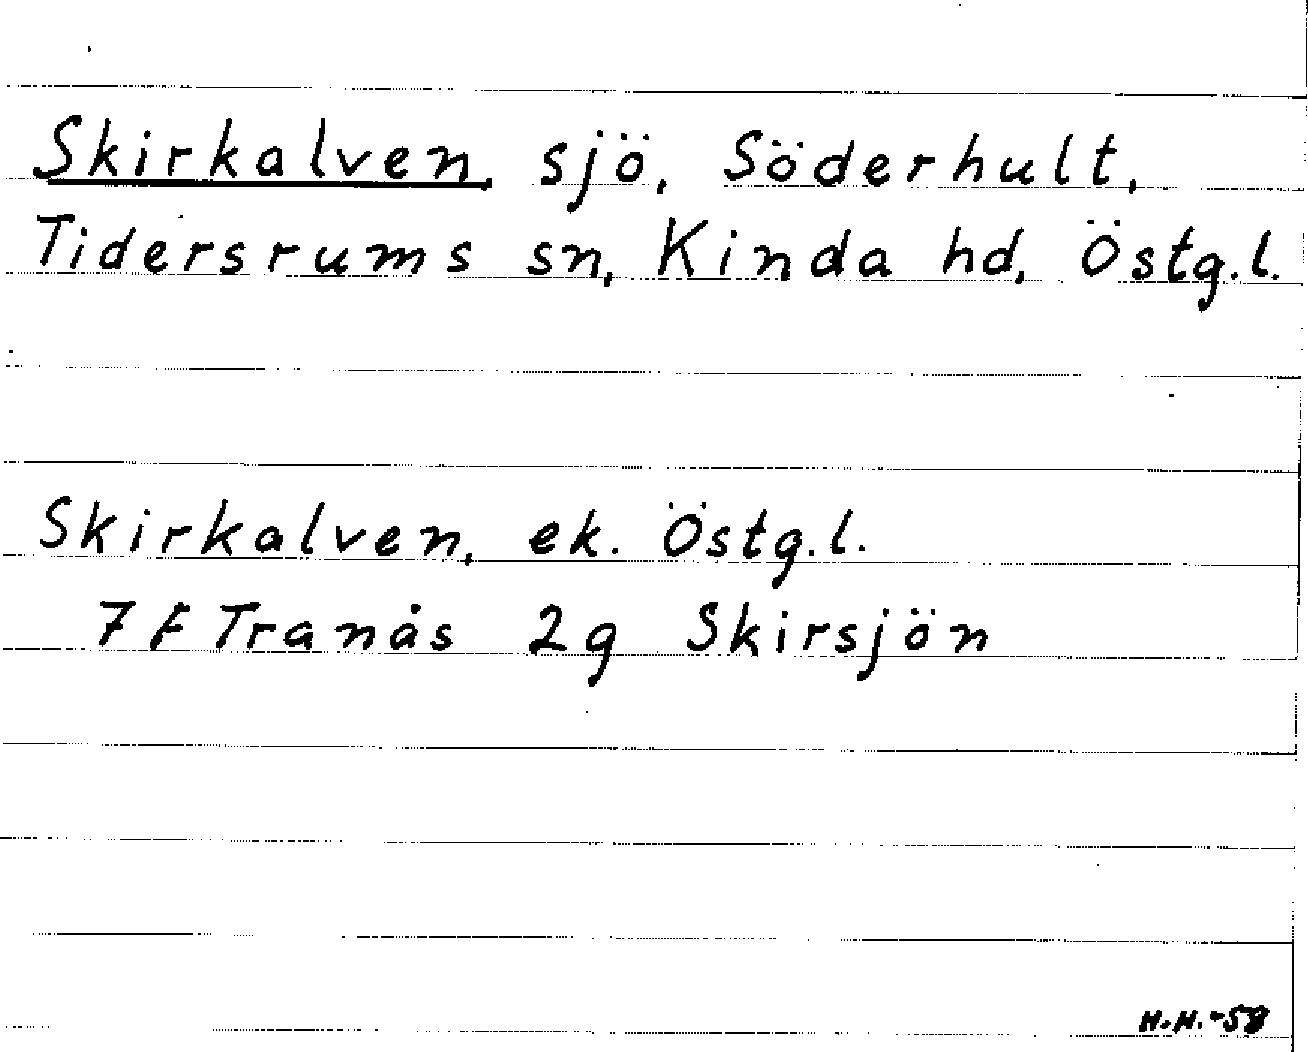 Skirkalven, sjö, Söderhult,
Tidersrums sn, Kinda hd, Östg.l.
Skirkalven, ek. Östg.l.
7 F Tranås 2g Skirsjön
H.H.-58